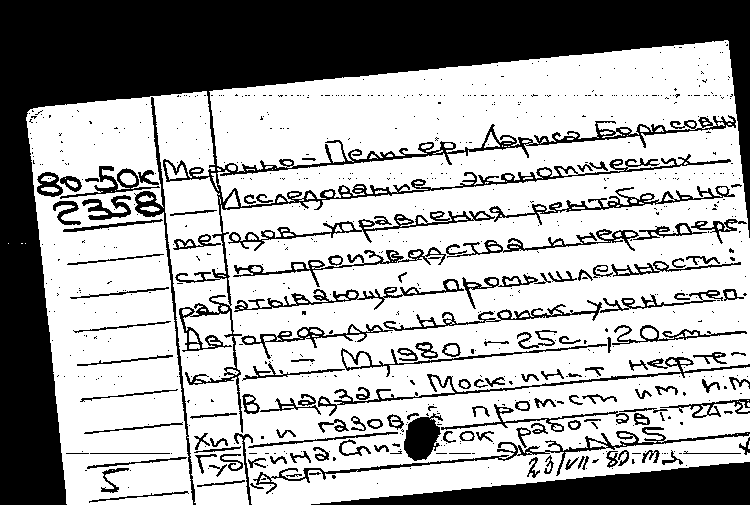 80-50к
2358
Меронью-Пелисер, Лариса Борисовна
Исследование экономических
методов управления рентабельно-
стью производства в нефтепере-
рабатывающей промышленности:
Автореф. дис. на соиск. учен. степ.
к.э.н. – М, 1980. – 25с.; 20см.
В надзаг.: Моск. ин-т нефте-
хим. и газовой пром-сти им. И.М.
Губкина. Список работ авт.: 24-25
Экз. N95
ДСП.
5
23/VII-80. т.з.